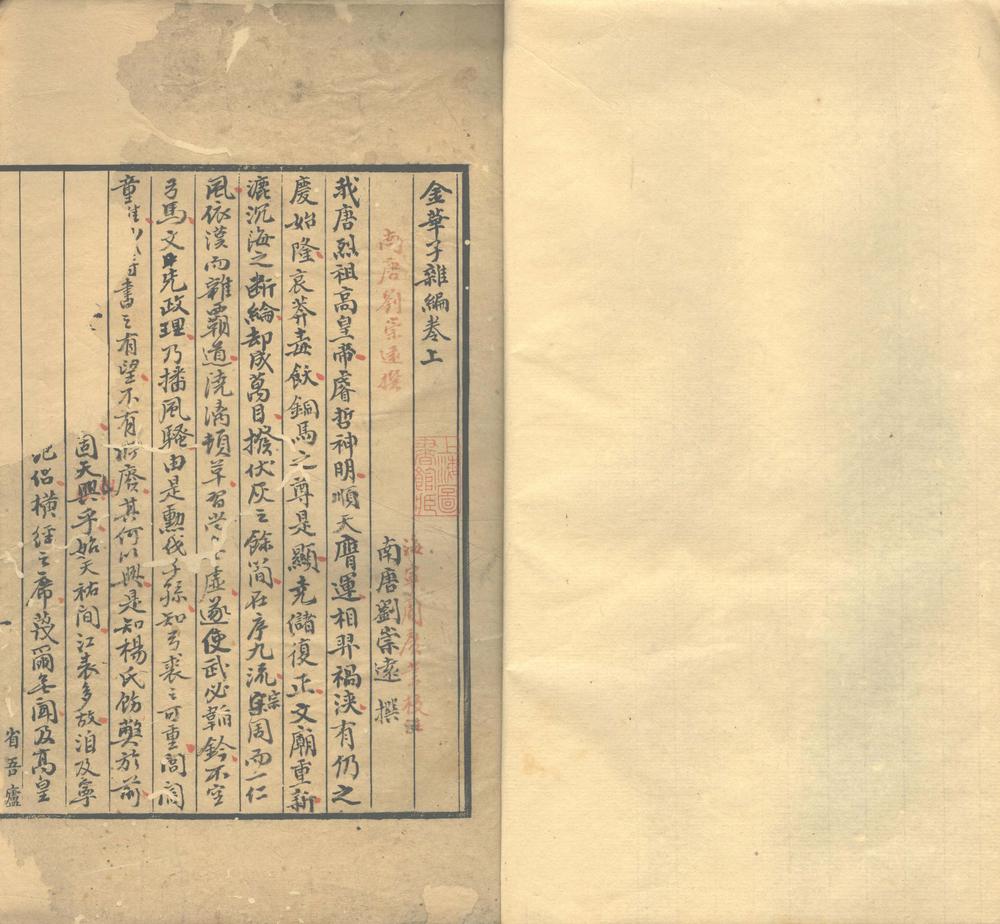 金華子雜編卷上
南唐劉崇遠撰
海寧周廣業校注
上海圖書館藏
南唐劉崇遠 撰
我唐烈祖高皇帝睿哲神明順天膺運相羿禍浹有仍之
慶始隆哀莽毒飫銅馬之尊是顯克儲復正文廟重新
漉沉海之斷綸却成萬目撥伏灰之餘簡在序九流宗周而一仁
風依漢而雜霸道澆漓頓革習尚虛遂使武必韜鈐不空
弓馬文先政理乃播風騷由是勳伐子孫知弓裘之可重閭閻
童書之有望不有所廢其何以興是知楊氏飭獘於前
固天興乎始天祐間江表多故洎及寧
侶橫經之席蔑爾無聞及高皇
省吾廬